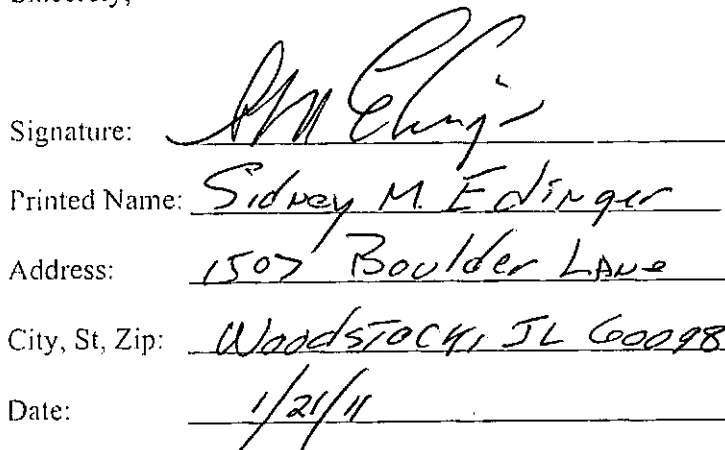 Sincerely,
Signature:
Printed Name: Sidney M. Edinger
Address: 1507 Boulder Lane
City, St, Zip: Woodstock, IL 60098
Date: 1/21/11